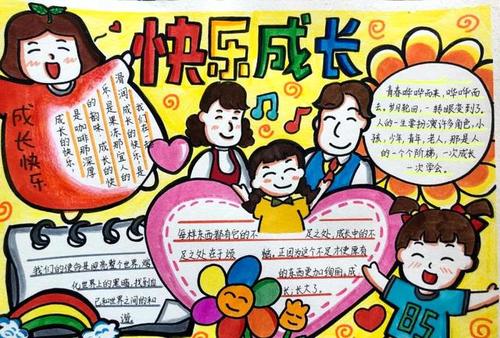 快乐成长
成长快乐
滑润，成长的快
乐，是果冻那宜人
的韵味，成长的快乐
是咖啡那深厚
青春哗哗而来，哗哗而
去。岁月轮回，一转眼变到了。
人的一生要扮演许多角色，小
孩，少年，青年，老人，那是人
的一个个阶梯，一次成长
一次学会。
每样东西都有它的不足之处，成长中的不
足之处在于烦恼。正因为这个不足才使原有
的东西更加绚丽，成
长：长大了。
我们的使命是照亮整个世界，熔
化世界上的黑暗，找到自
己和世界之间的和
谐。
85